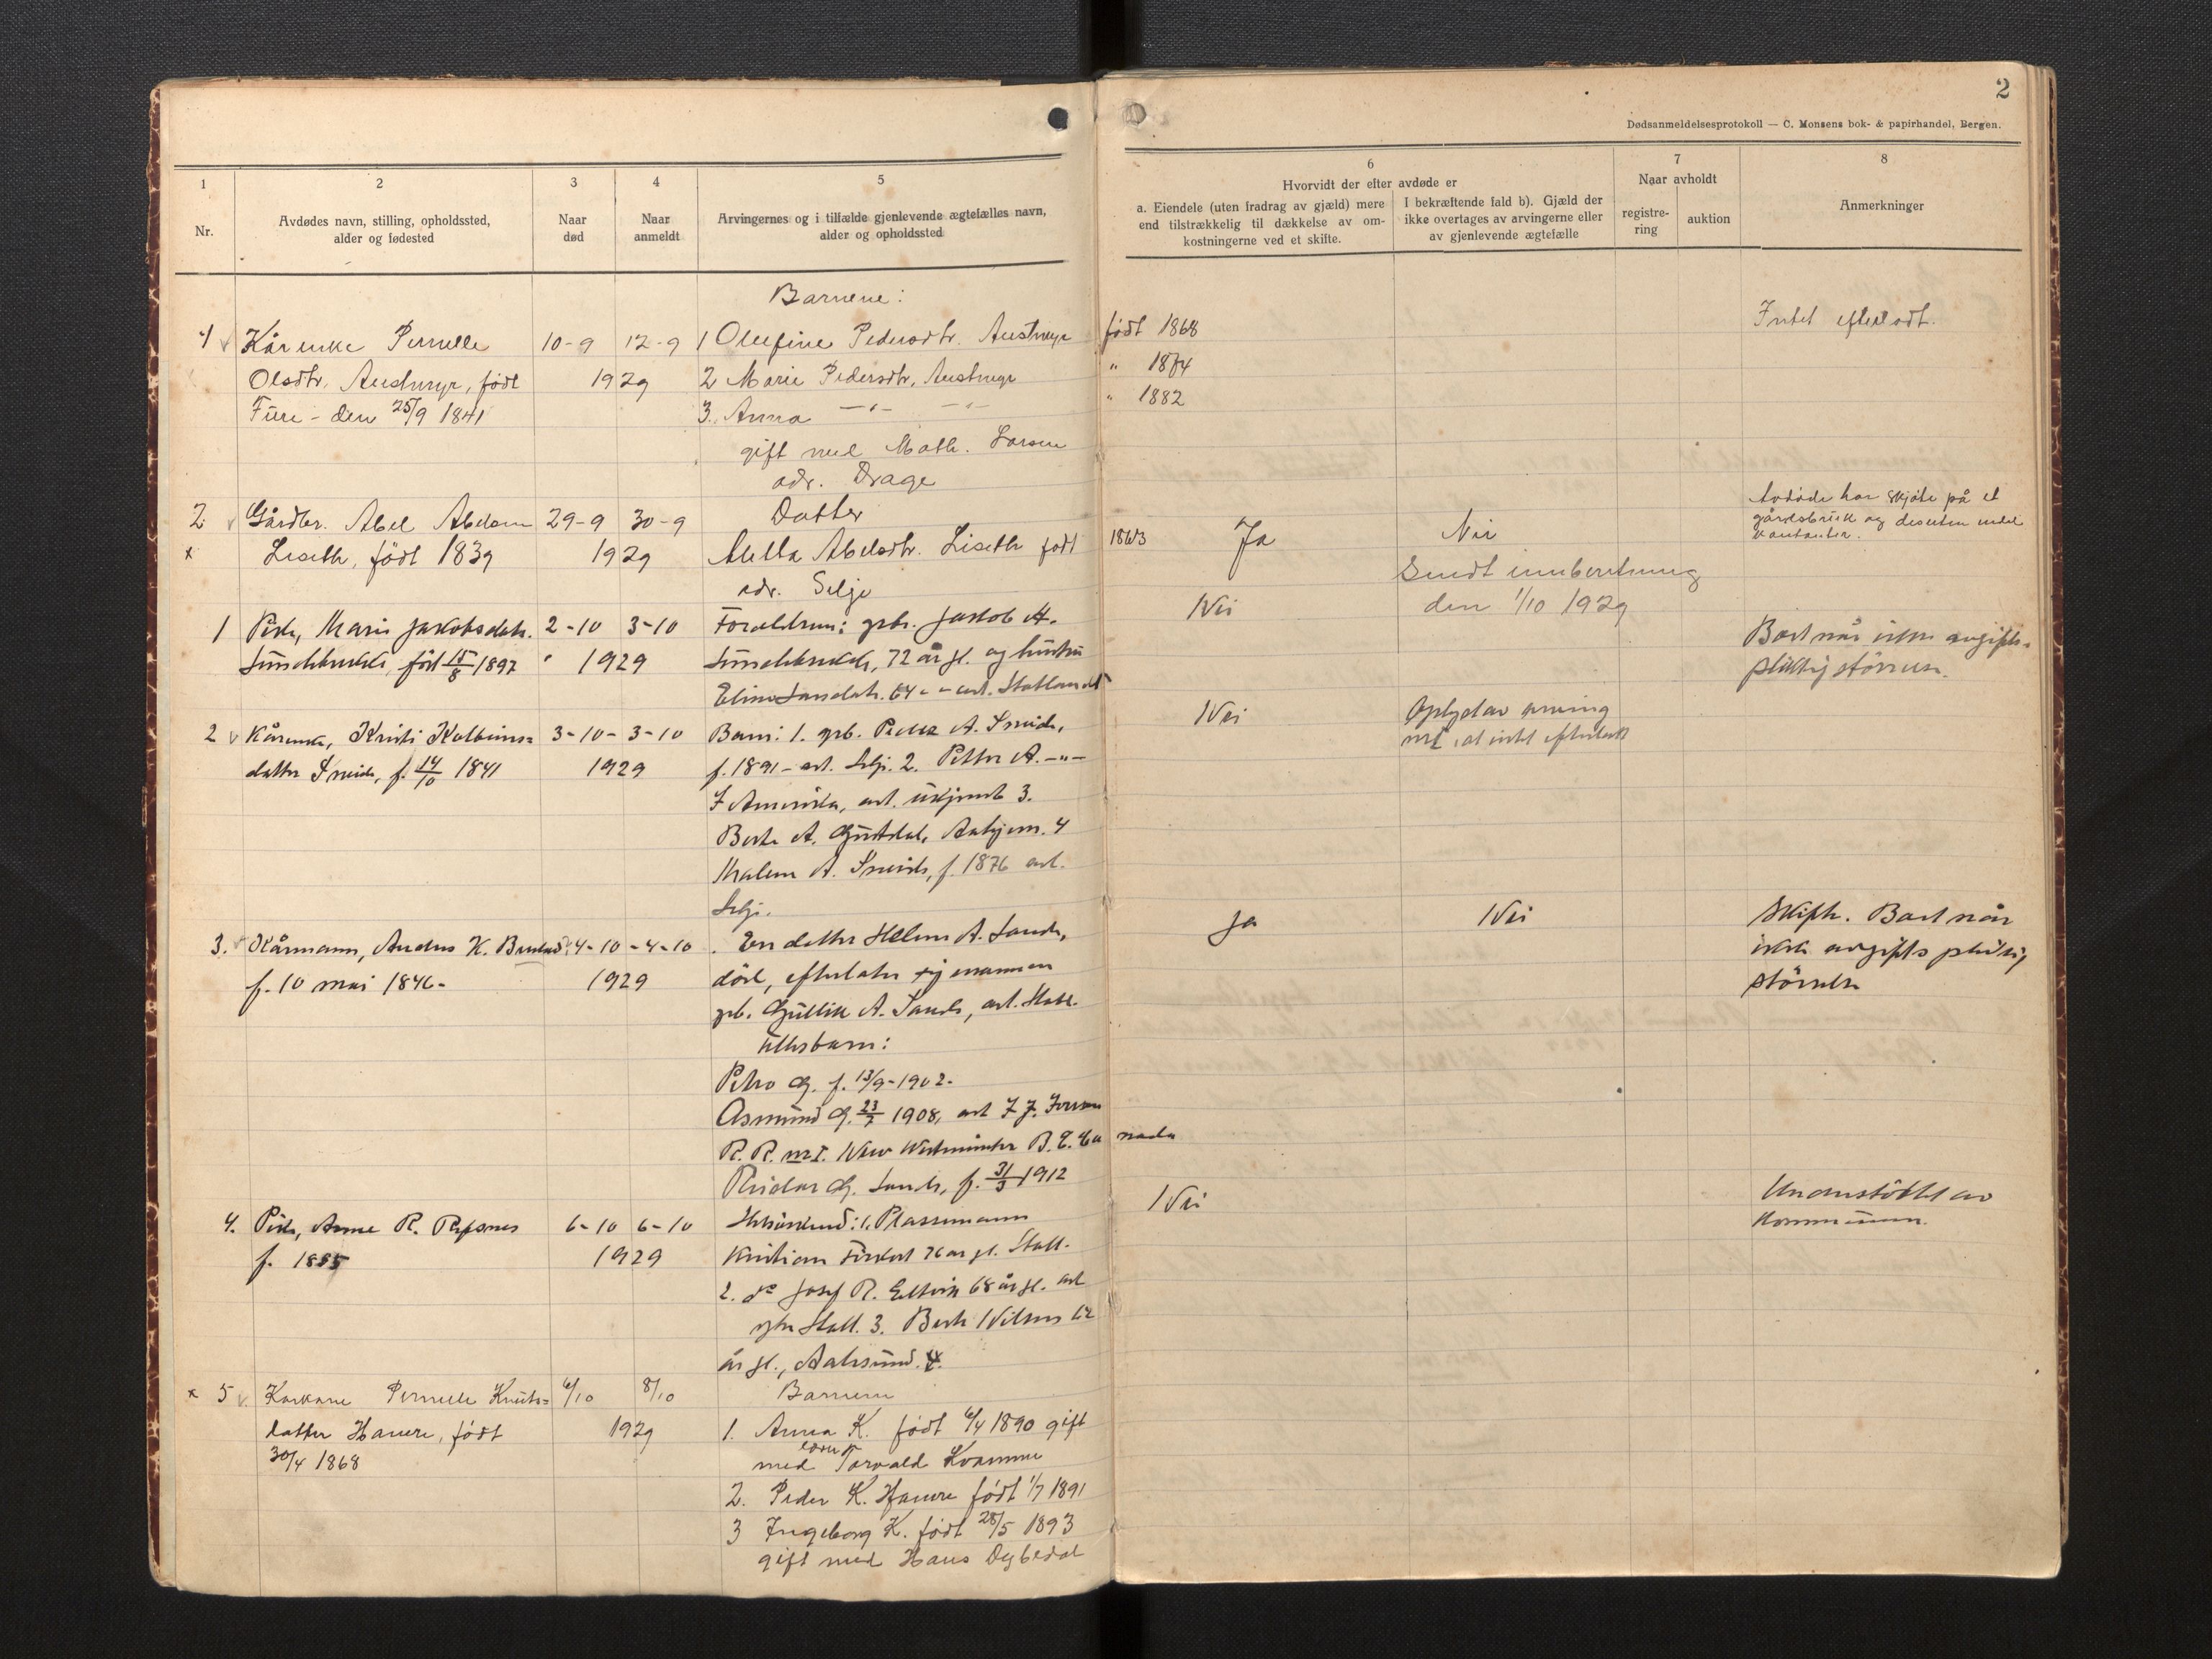 2
Dødsanmeldelsesprotokoll — C. Monsens bok- & papirhandel, Bergen.
1
Nr.
2
Avdødes navn, stilling, opholdssted,
alder og fødested
3
Naar
død
4
Naar
anmeldt
5
Arvingernes og i tilfælde gjenlevende ægtefælles navn,
alder og opholdssted
6
Hvorvidt der efter avdøde er
a. Eiendele (uten fradrag av gjæld) mere
end tilstrækkelig til dækkelse av om-
kostningerne ved et skifte.
I bekræftende fald b). Gjæld der
ikke overtages av arvingerne eller
av gjenlevende ægtefælle
7
Naar avholdt
registre-
ring
auktion
8
Anmerkninger
Barnene:
1 Kårenke Pernelle 10-9 12-9 1 Olufine Pedersdtr. Austmyr født 1868 Intet efterladt.
Olsdtr. Austmyr, født 1929 2 Marie Pedersdtr, Austmyr " 1874
Fure - den 25/9 1841 3. Anna —"— —"— " 1882
gift med Math. Larsen
adr. Drage
2 Gårdbr. Abel Abelsen 29-9 30-9 Datter Ja Nei Avdøde har skjøte på et
gårdsbruk og desuten endel
kontanter.
x Liseth, født 1839 1929 Abelsdtr. Liseth født 1863
adr. Selje
Sendt innberetning
den 1/10 1929
1 Pike, Marie Jakobsdatr. 2-10 3-10 Foreldrene: gbr. Jakob A. Nei Boet når ikke avgifts-
født 15/8 1897 1929 72 år gl. og hustru pliktig størrelse.
64 - " - adr. Statlandet
2 Kårenke, Kristi Kolbeins= 3-10 - 3-10 Barn: 1. grb. A. Nei Oplyst av
datter f. 14/10 1841 1929 f. 1891 - adr. Selje. 2. Petter A. —"— nr 1, at intet efterlatt
I Amerika, adr. ukjent 3.
Berte A. 4
A. f. 1876 adr.
Selje.
3. Kårmann, Andreas K. 4-10 - 4-10 En datter Helene A. Sande, Ja Nei Skifte. Boet når
f. 10 mai 1846- 1929 død, efterlater sig mannen ikke avgiftspliktig
grb. Gullik A. Sande, adr. Statl. størrelse
Petra G. f. 13/9-1902.
Asmund G. 23/7 1908, adr
R. R. nr 1. New Westminster B. C. Ca nada
Reidar G. Sande, f. 31/3 1912
4. Pike, Anne R. 6-10 6-10 Søskend: 1. Plassmann Nei Understøttet av
f. 1885 1929 Kristian 76 år gl. Statl. kommunen.
2. do Josef R. 68 år gl. adr
Statl. 3. Berte Nilsen 62
år gl., Aalesund. 4.
x 5 Karkone Pernelle Knuts= 6/10 8/10 Barnene
datter Hamre, født 1929 1. Anna K. født 6/4 1890 gift
30/4 1868 med Torvald Kvamme
2. Peder K. Hamre født 1/7 1891
3 Ingeborg K. født 28/5 1893
gift med Hans Dybedal